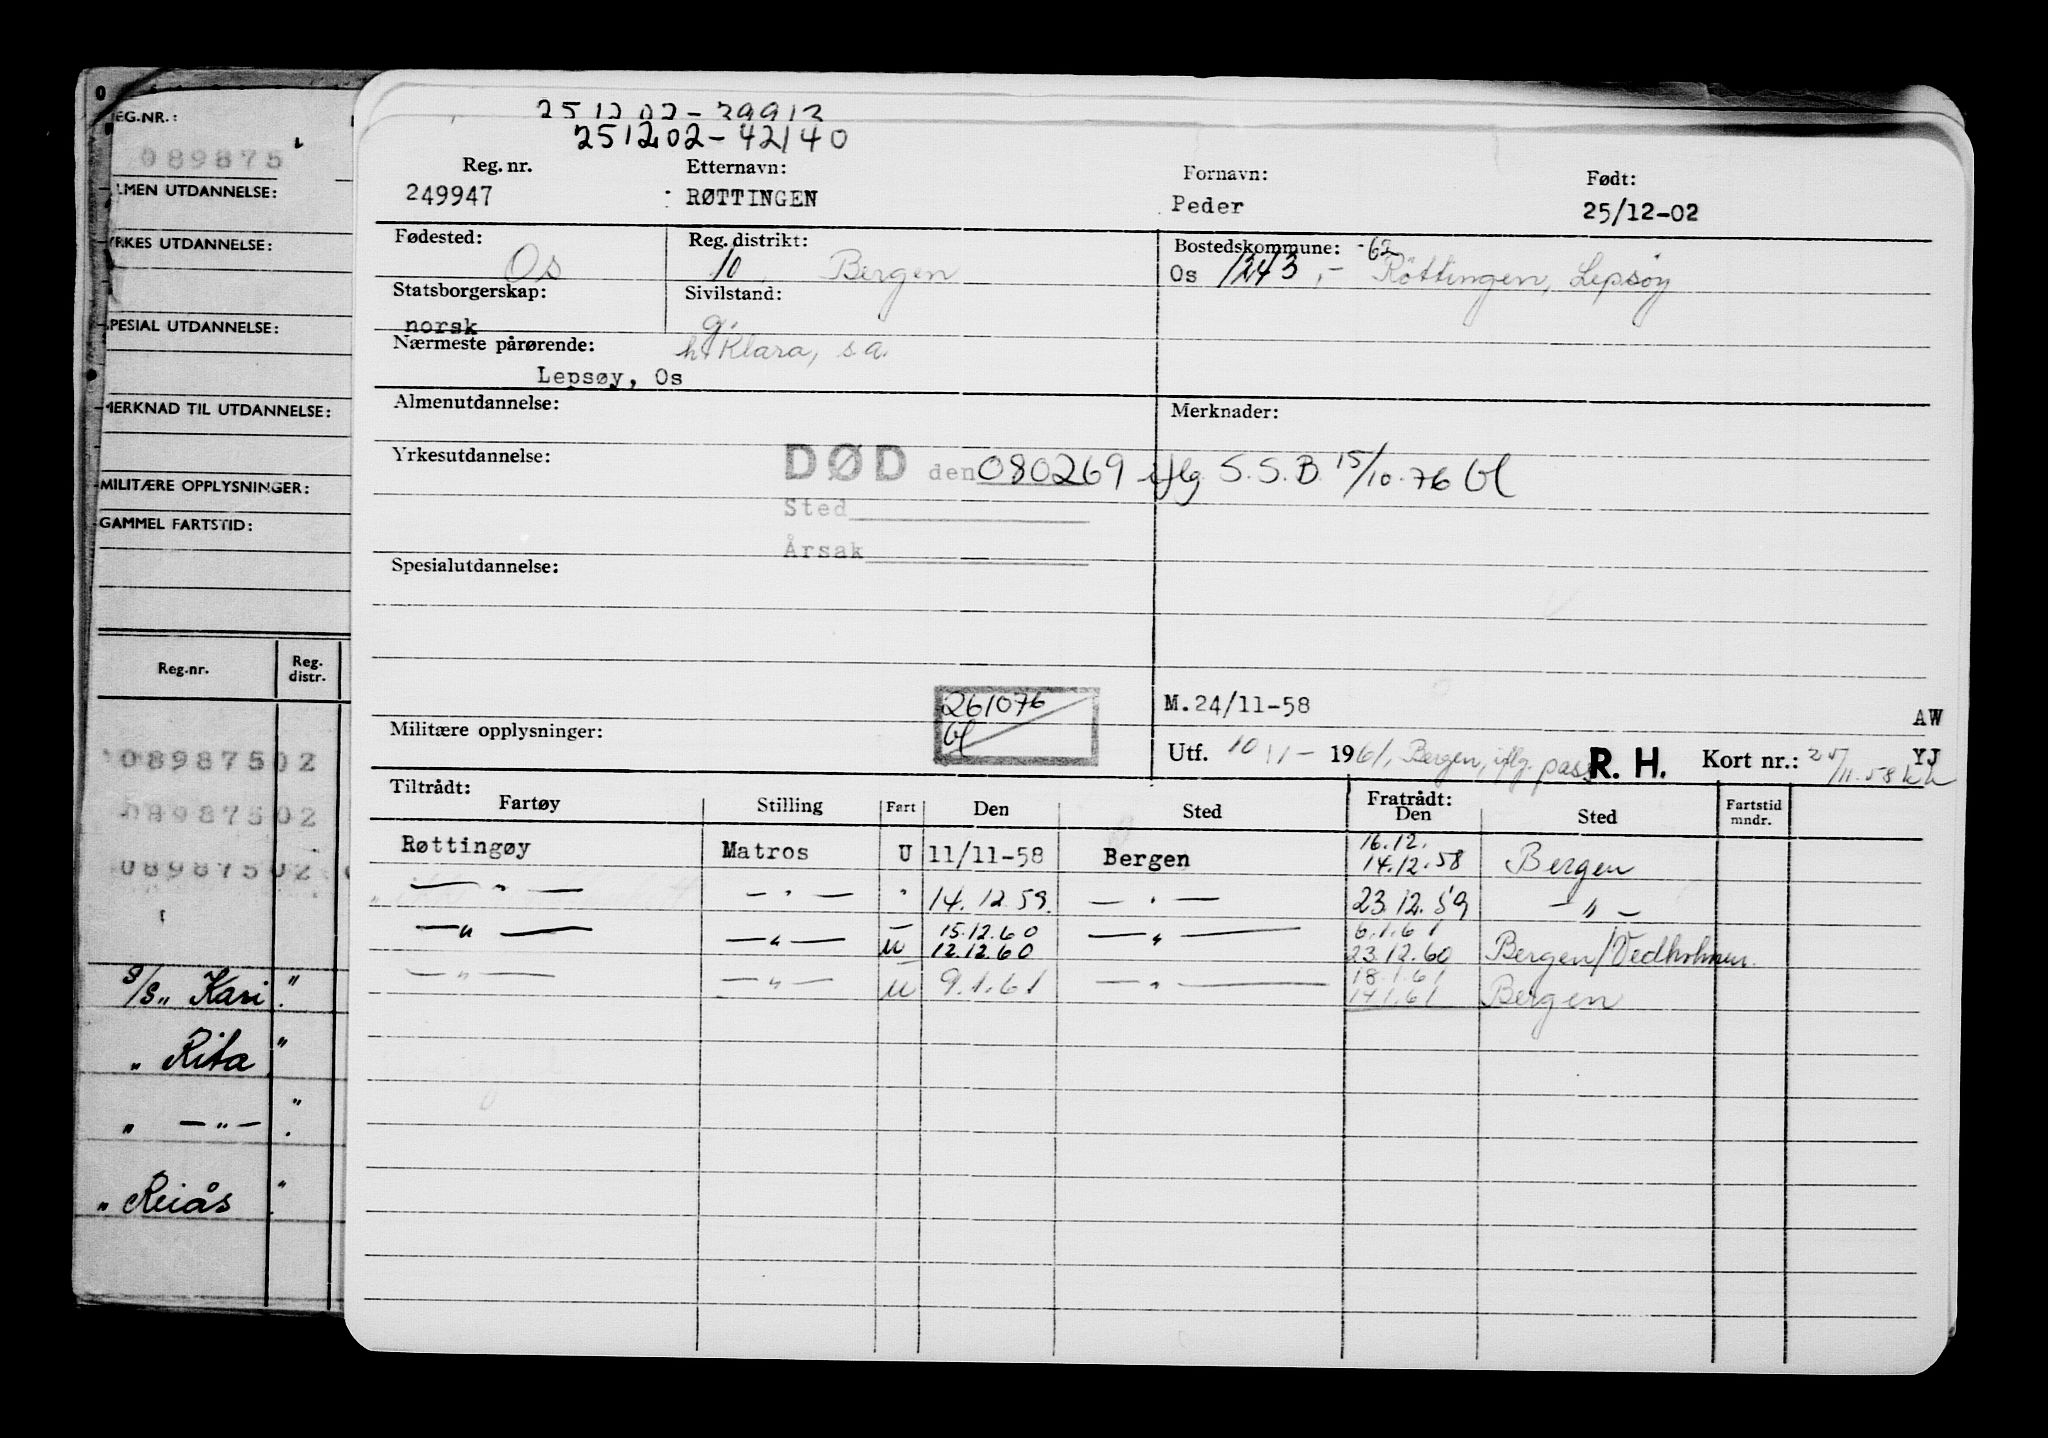 REG.NR.:
089875
ALMEN UTDANNELSE:
YRKES UTDANNELSE:
SPESIAL UTDANNELSE:
MERKNAD TIL UTDANNELSE:
MILITÆRE OPPLYSNINGER:
GAMMEL FARTSTID:
Reg.nr. Reg. distr.
08987502
08987502
08987502
S/S „ Kari "
„ Rita "
„ —„— "
„ Reiås "
251202-39913
251202-42140
Reg. nr. Etternavn: Fornavn: Født:
249947 RØTTINGEN Peder 25/12-02
Fødested: Os Reg. distrikt: 10, Bergen Bostedskommune: -62
Os 1243,- Röttingen, Lepsöy
Statsborgerskap: Sivilstand:
norsk g.
Nærmeste pårørende: h Klara, s.a.
Lepsøy, Os
Almenutdannelse: Merknader:
Yrkesutdannelse: DØD den 080269 iflg. S.S.B. 15/10-76
Sted
Årsak
Spesialutdannelse:
261076 M.24/11-58 AW
Militære opplysninger: Utf. 10 - 1961, Bergen, iflg. pass R. H. Kort nr.: YJ
Tiltrådt: Fratrådt:
Fartøy Stilling Fart Den Sted Den Sted Fartstid mndr.
16.12.
Røttingøy Matros U 11/11-58 Bergen 14.12.58 Bergen
—„— —„— " 14.12.59. —„— 23.12.59 —„—
15.12.60 6.1.61
—„— —„— u 12.12.60 —„— 23.12.60 Bergen/Vedholmen.
18.1.61
—„— —„— u 9.1.61 —„— 14.1.61 Bergen